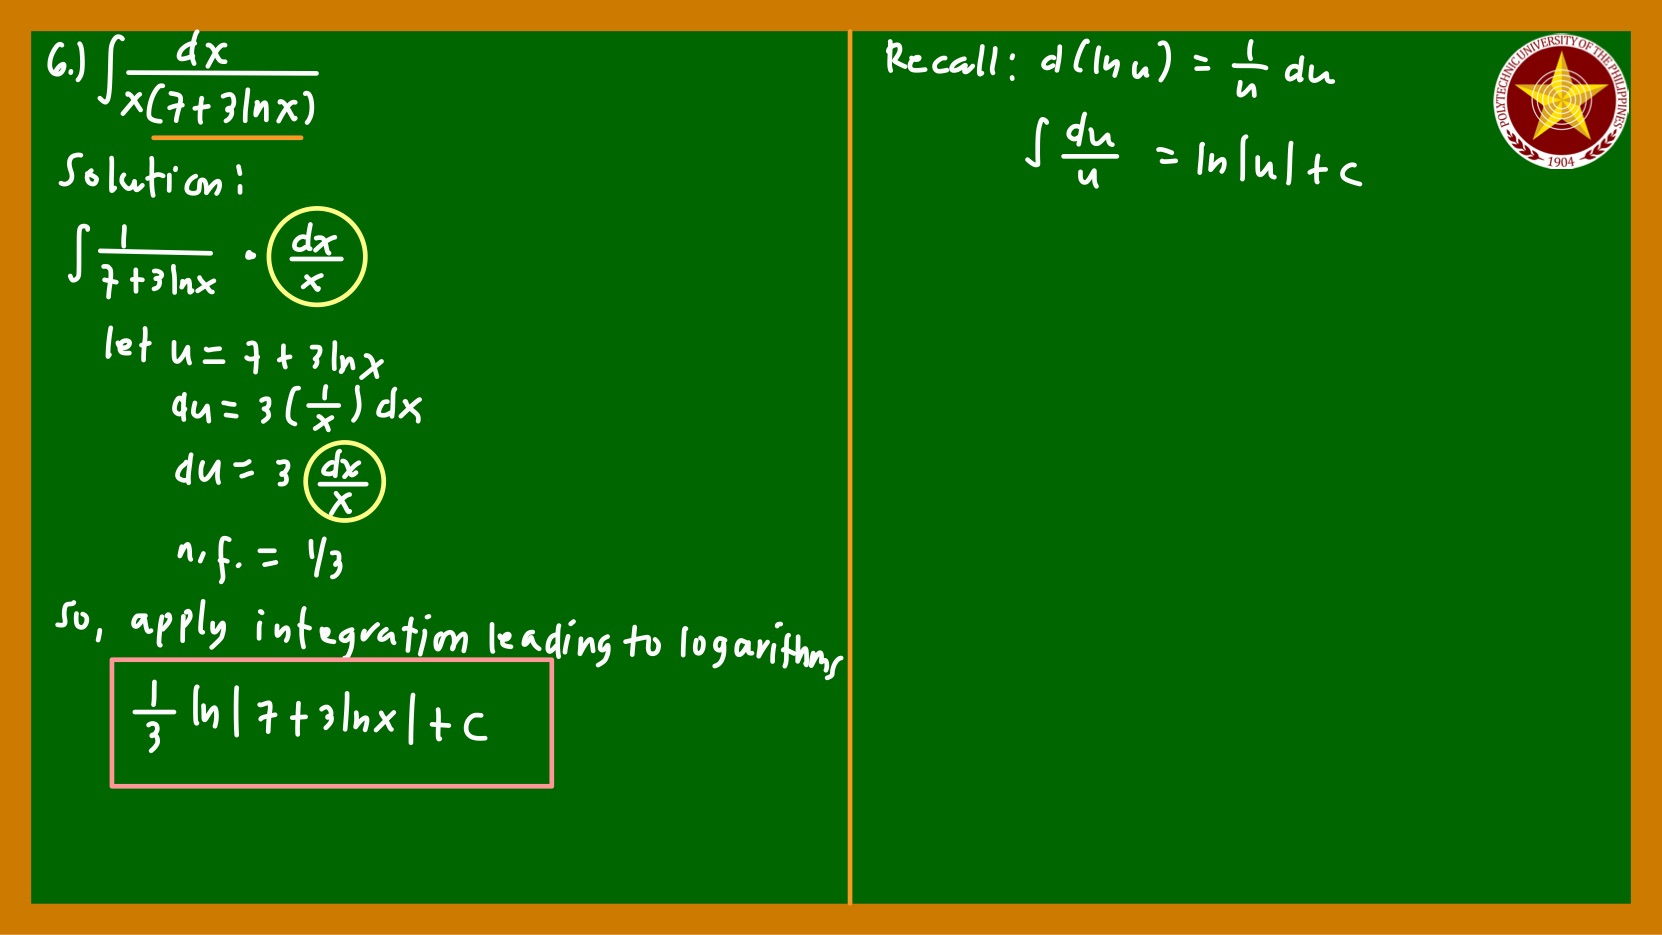 6.) ∫ dx / x(7+3lnx)
Solution:
∫ 1 / 7+3lnx · dx / x
let u = 7 + 3lnx
du = 3 (1/x) dx
du = 3 dx / x
n.f. = 1/3
So, apply integration leading to logarithms
1/3 ln|7+3lnx| + C
Recall: d(ln u) = 1/u du
∫ du/u = ln|u| + C
POLYTECHNIC UNIVERSITY OF THE PHILIPPINES
1904